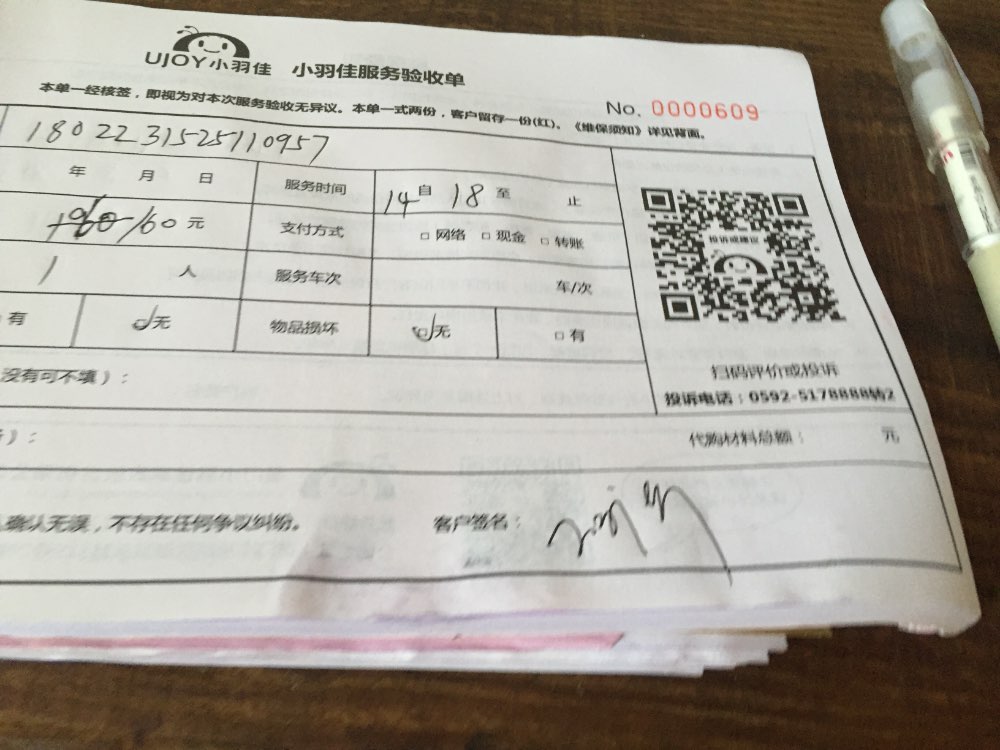 UJOY小羽佳 小羽佳服务验收单
No. 0000609
本单一经核签，即视为对本次服务验收无异议。本单一式两份，客户留存一份(红)。《维保须知》详见背面。
1802231525110957
年 月 日 服务时间 14 自 18 至 止
160 元 支付方式 □ 网络 □ 现金 □ 转账
1 人 服务车次 车/次
有 □无 物品损坏 □无 □有
投诉或建议
扫码评价或投诉
投诉电话：0592-5178888转2
没有可不填）：
）： 代购材料总额： 元
确认无误，不存在任何争议纠纷。 客户签名：